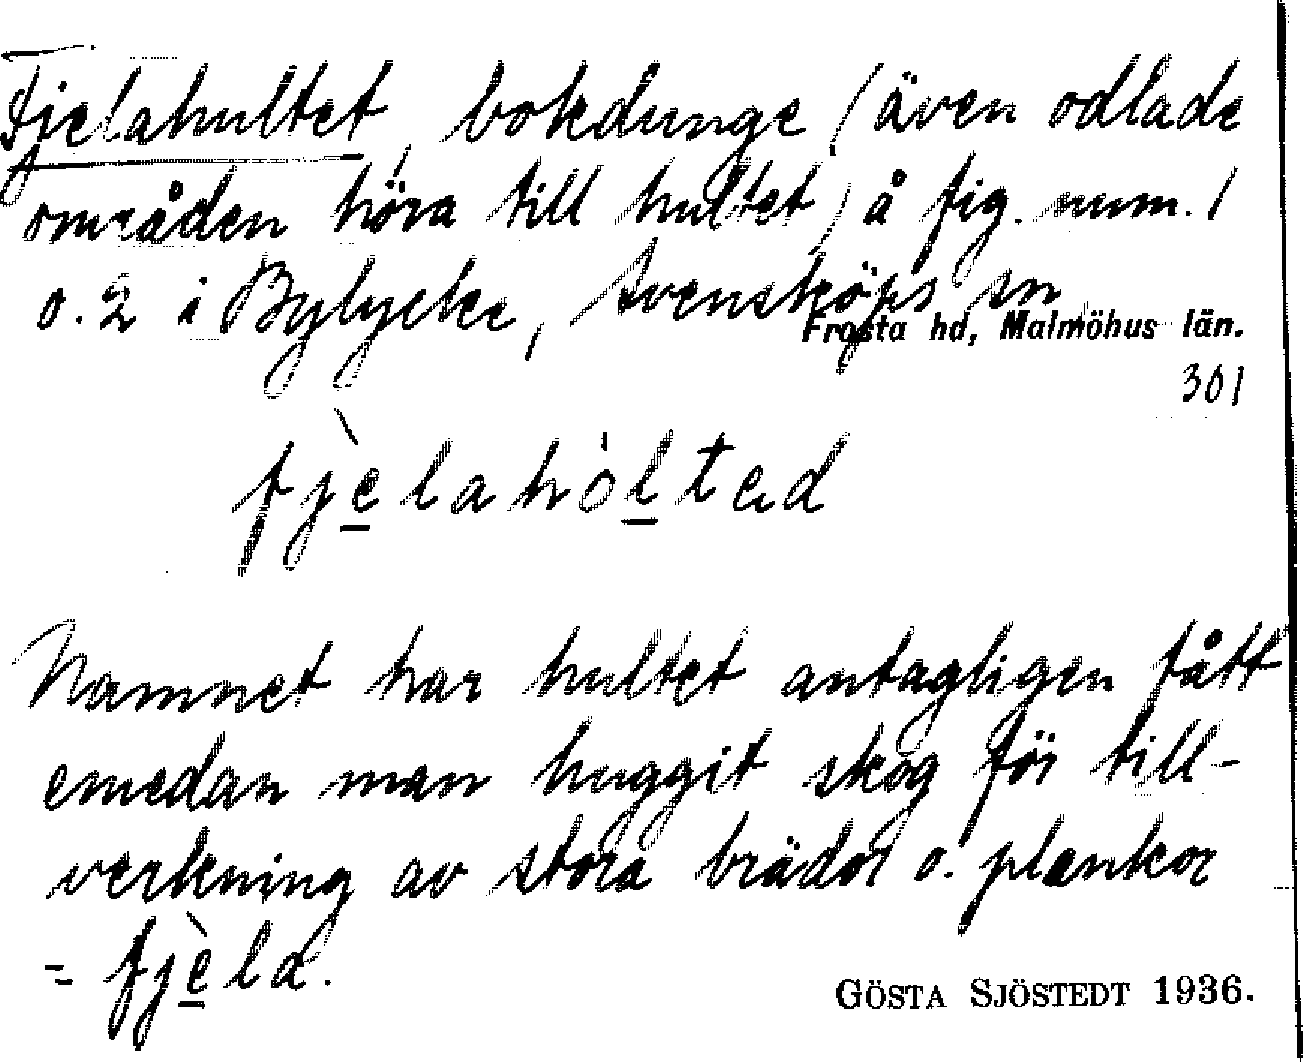 Fjelahultet, bokdunge (även odlade
områden höra till hultet) å fig. num. 1
o. 2 i Bylycke, Svensköps sn
Frosta hd, Malmöhus län.
301
fjèlahòlted
Namnet har hultet antagligen fått
emedan man huggit skog för till-
verkning av stora brädor o. plankor
= fjèla.
GÖSTA SJÖSTEDT 1936.